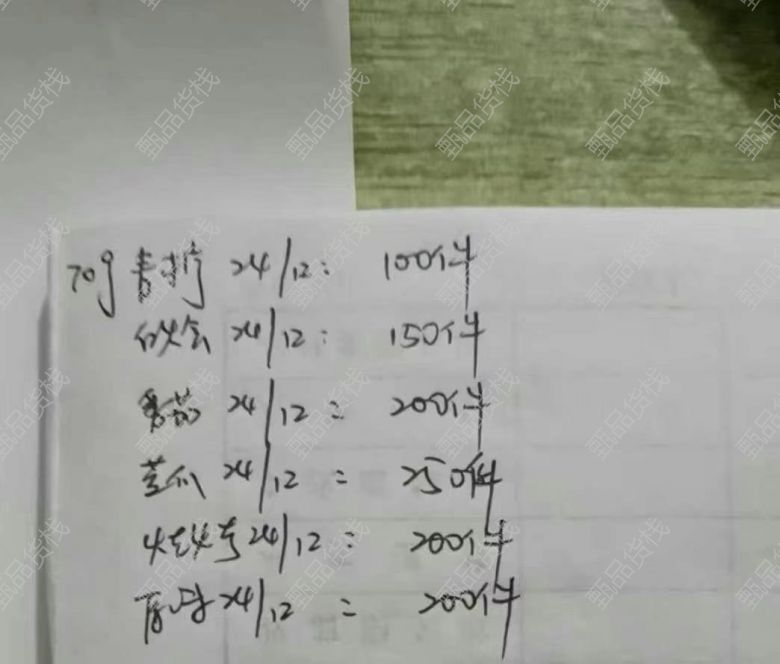 70g 青柠 24/12: 100件
24/12: 150件
番茄 24/12: 200件
黄瓜 24/12: 250件
24/12: 200件
24/12: 200件
甄品货栈